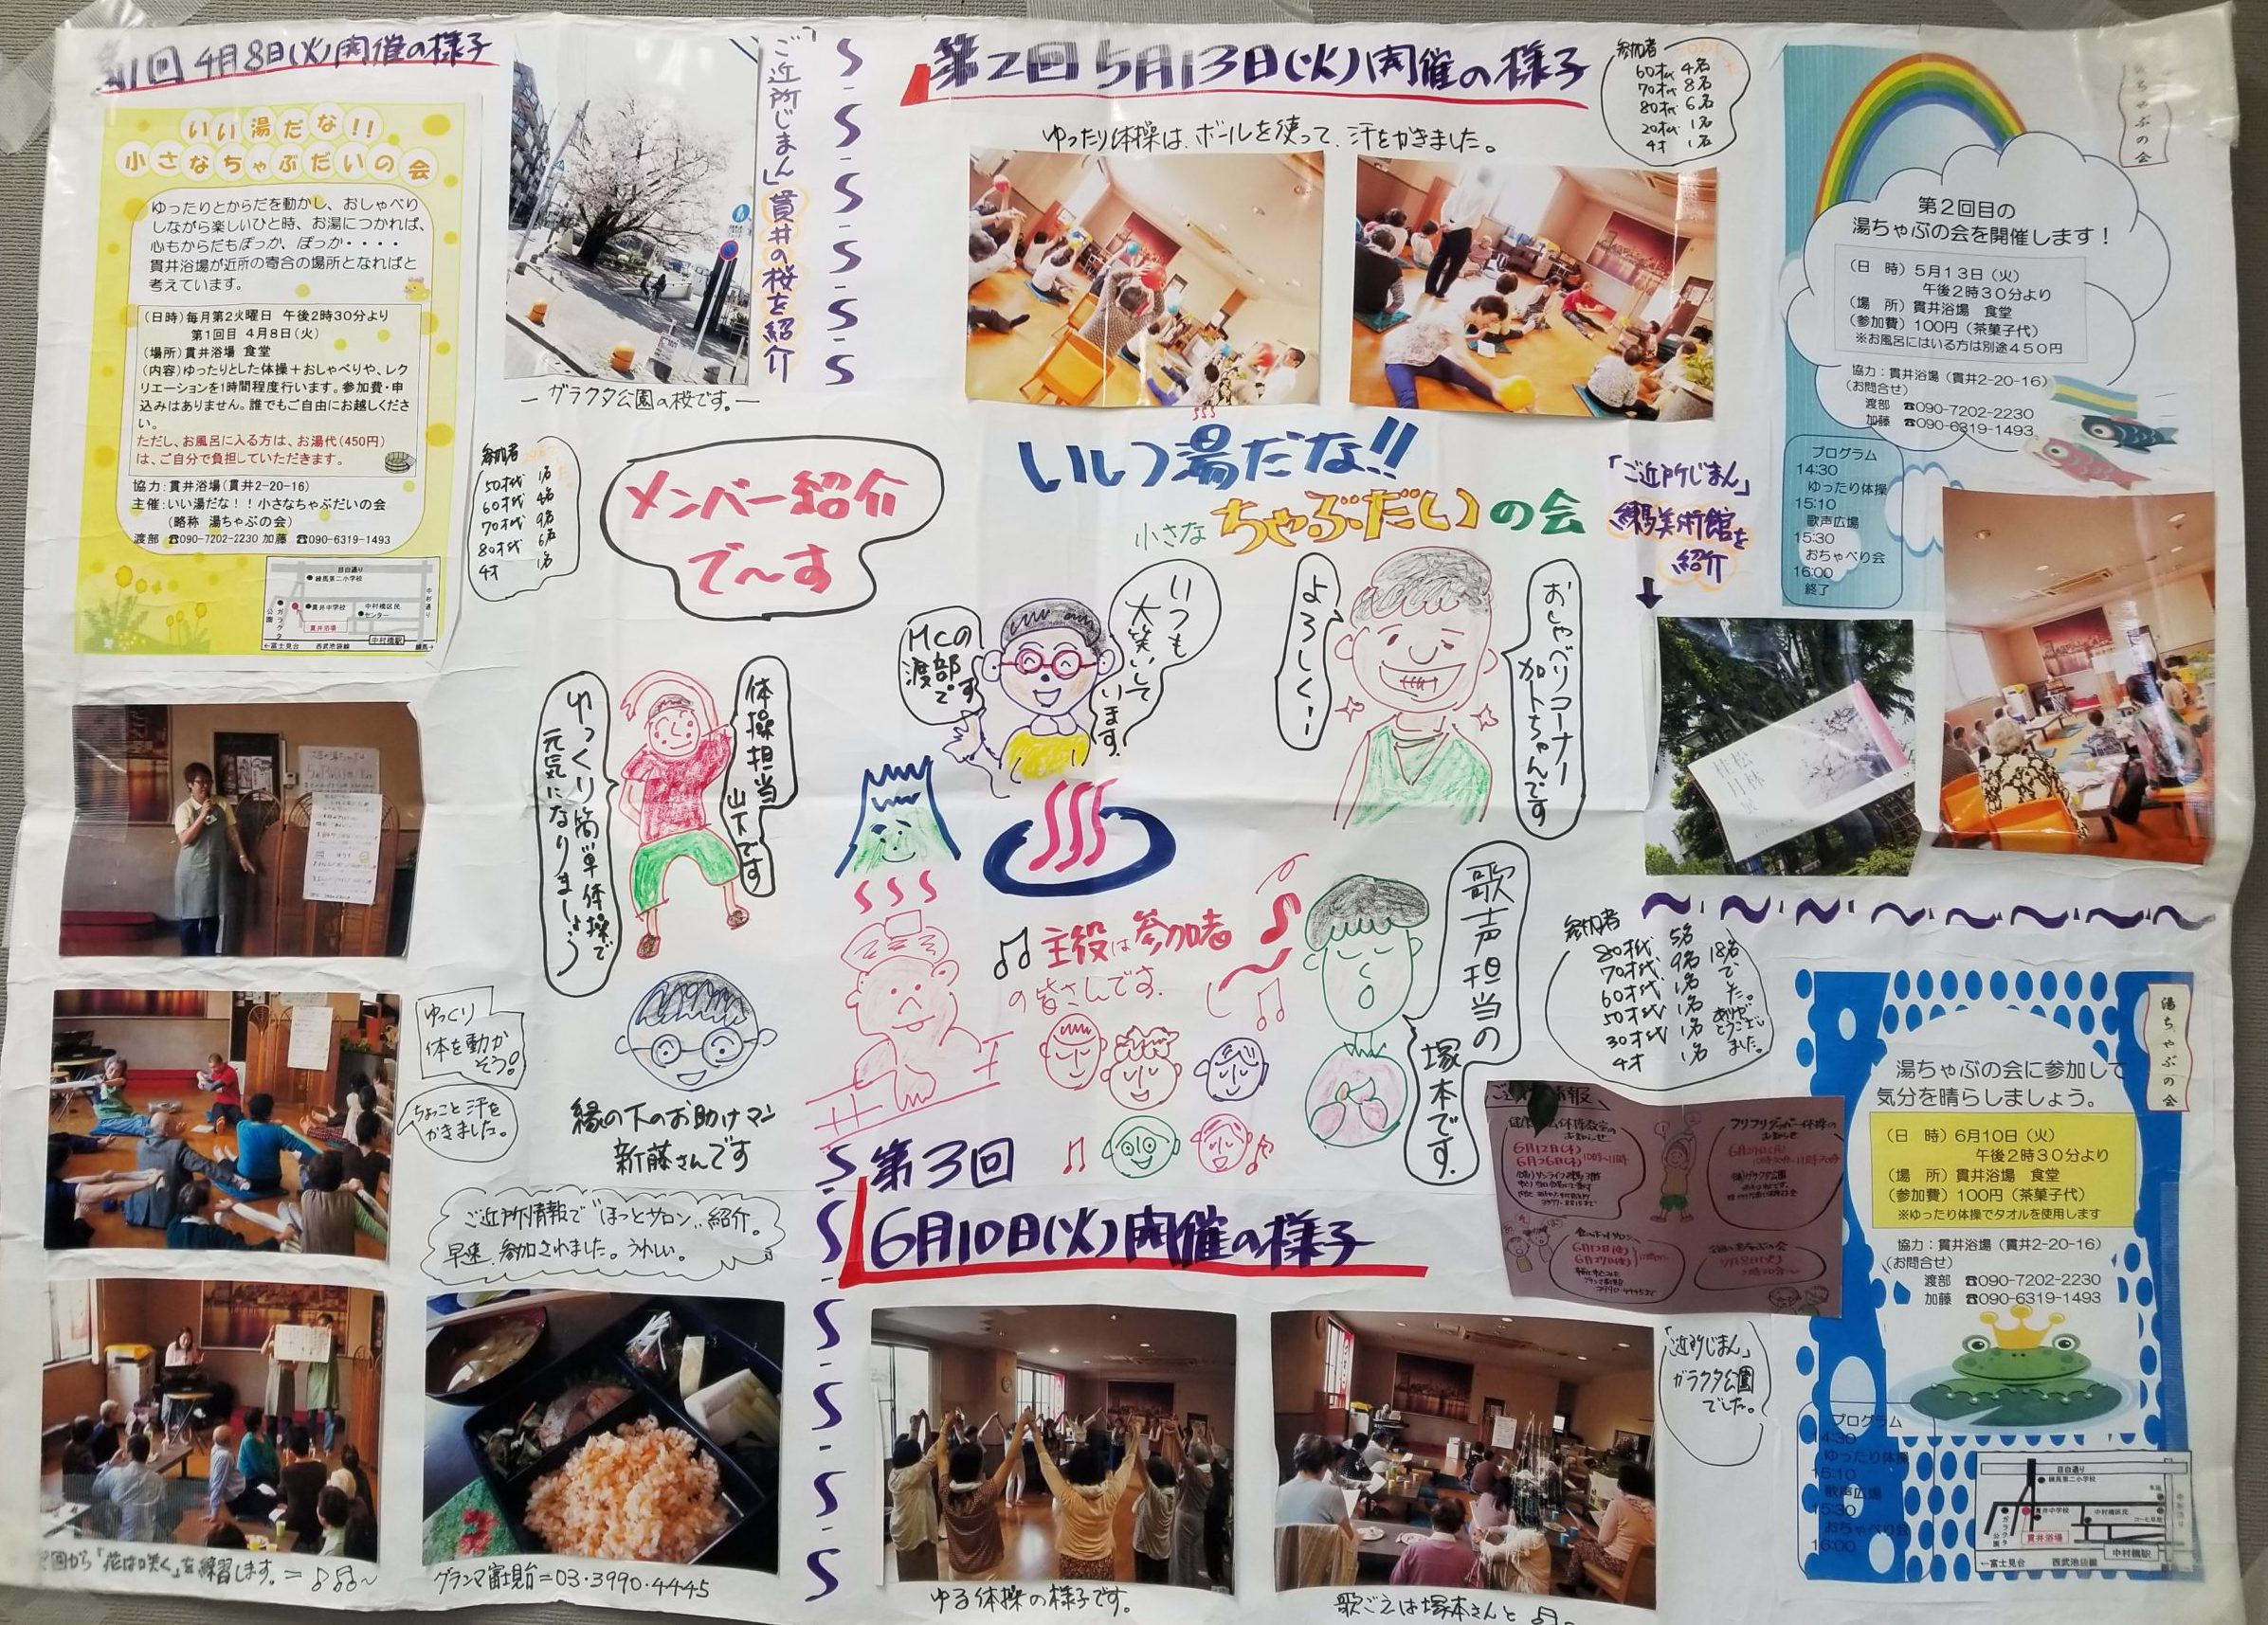 第1回 4月8日(火)開催の様子
いい湯だな!!
小さなちゃぶだいの会
ゆったりとからだを動かし、おしゃべり
しながら楽しいひと時、お湯につかれば、
心もからだもぽっか、ぽっか・・・・
貫井浴場が近所の寄合の場所となればと
考えています。
(日時)毎月第2火曜日 午後2時30分より
第1回目 4月8日(火)
(場所)貫井浴場 食堂
(内容)ゆったりとした体操+おしゃべりや、レク
リエーションを1時間程度行います。参加費・申
込みはありません。誰でもご自由にお越しくださ
い。
ただし、お風呂に入る方は、お湯代(450円)
は、ご自分で負担していただきます。
協力:貫井浴場(貫井2-20-16)
主催:いい湯だな!!小さなちゃぶだいの会
(略称 湯ちゃぶの会)
渡部 ☎090-7202-2230 加藤 ☎090-6319-1493
目白通り
練馬第二小学校
貫井中学校
中村橋区民
センター
ガラクタ
公園
貫井浴場
中村橋駅
←富士見台 西武池袋線 練馬→
「ご近所じまん」貫井の桜を紹介
ー ガラクタ公園の桜です。ー
参加者
50才代 1名
60才代 4名
70才代 9名
80才代 6名
4才 1名
第2回 5月13日(火)開催の様子
参加者
60才代 4名
70才代 8名
80才代 6名
20才代 1名
4才 1名
ゆったり体操は、ボールを使って、汗をかきました。
湯ちゃぶの会
第2回目の
湯ちゃぶの会を開催します!
(日 時)5月13日(火)
午後2時30分より
(場 所)貫井浴場 食堂
(参加費)100円(茶菓子代)
※お風呂にはいる方は別途450円
協力:貫井浴場(貫井2-20-16)
(お問合せ)
渡部 ☎090-7202-2230
加藤 ☎090-6319-1493
プログラム
14:30
ゆったり体操
15:10
歌声広場
15:30
おちゃべり会
16:00
終了
メンバー紹介
で〜す
いい湯だな!!
小さな ちゃぶだいの会
「ご近所じまん」
練馬美術館を
紹介
MCの
渡部
です
いつも
大笑いして
います。
よろしくー
おしゃべりコーナー
加トちゃんです
体操担当
山下です
ゆっくり簡単体操で
元気になりましょう
歌声担当の
塚本です。
♫ 主役は参加者
の皆さんです。
縁の下のお助けマン
新藤さんです
ゆっくり
体を動か
そう!
ちょっこと汗を
かきました。
ご近所情報で"ほっとサロン"紹介。
早速、参加されました。うれしい。
参加者
80才代 5名
70才代 9名
60才代 1名
50才代 1名
30才代 1名
4才 1名
18名
でし
た。
ありが
とうござい
ました。
第3回
6月10日(火)開催の様子
6月12日(木)
6月26日(木) 10時〜11時
湯ちゃぶの会
湯ちゃぶの会に参加して
気分を晴らしましょう。
(日 時)6月10日(火)
午後2時30分より
(場 所)貫井浴場 食堂
(参加費)100円(茶菓子代)
※ゆったり体操でタオルを使用します
協力:貫井浴場(貫井2-20-16)
(お問合せ)
渡部 ☎090-7202-2230
加藤 ☎090-6319-1493
プログラム
14:30
ゆったり体操
15:10
歌声広場
15:30
おちゃべり会
16:00
目白通り
練馬第二小学校
貫井中学校
中村橋区民
ガラクタ
公園
貫井浴場
中村橋駅
←富士見台 西武池袋線
「ご近所じまん」
ガラクタ公園
でした。
回から「花は咲く」を練習します。
グランマ富士見台=03・3990・4445
ゆる体操の様子です。
歌ごえは塚本さんと